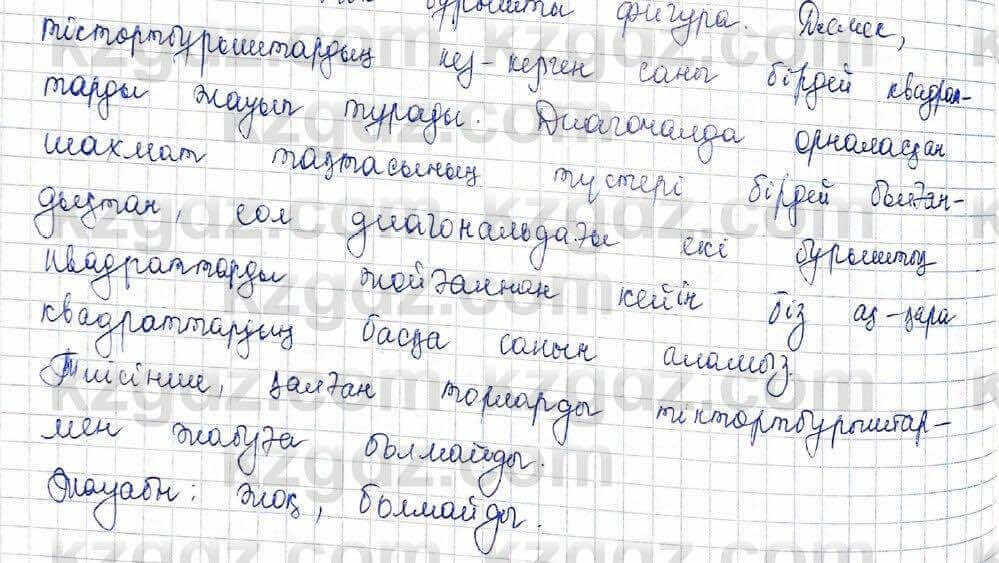 бұрышты фигура. Демек,
тістөртбұрыштардың кез-келген саны бірдей квадрат-
тарды жауып тұрады. Диагоналда орналасқан
шахмат тақтасының түстері бірдей болған-
дықтан, сол диагональдағы екі бұрыштық
квадраттарды жойғаннан кейін біз ақ-қара
квадраттардың басқа санын аламыз.
Тиісінше, қалған торларды тіктөртбұрыштар-
мен жабуға болмайды.
Жауабы: жоқ, болмайды.
kzgdz.com